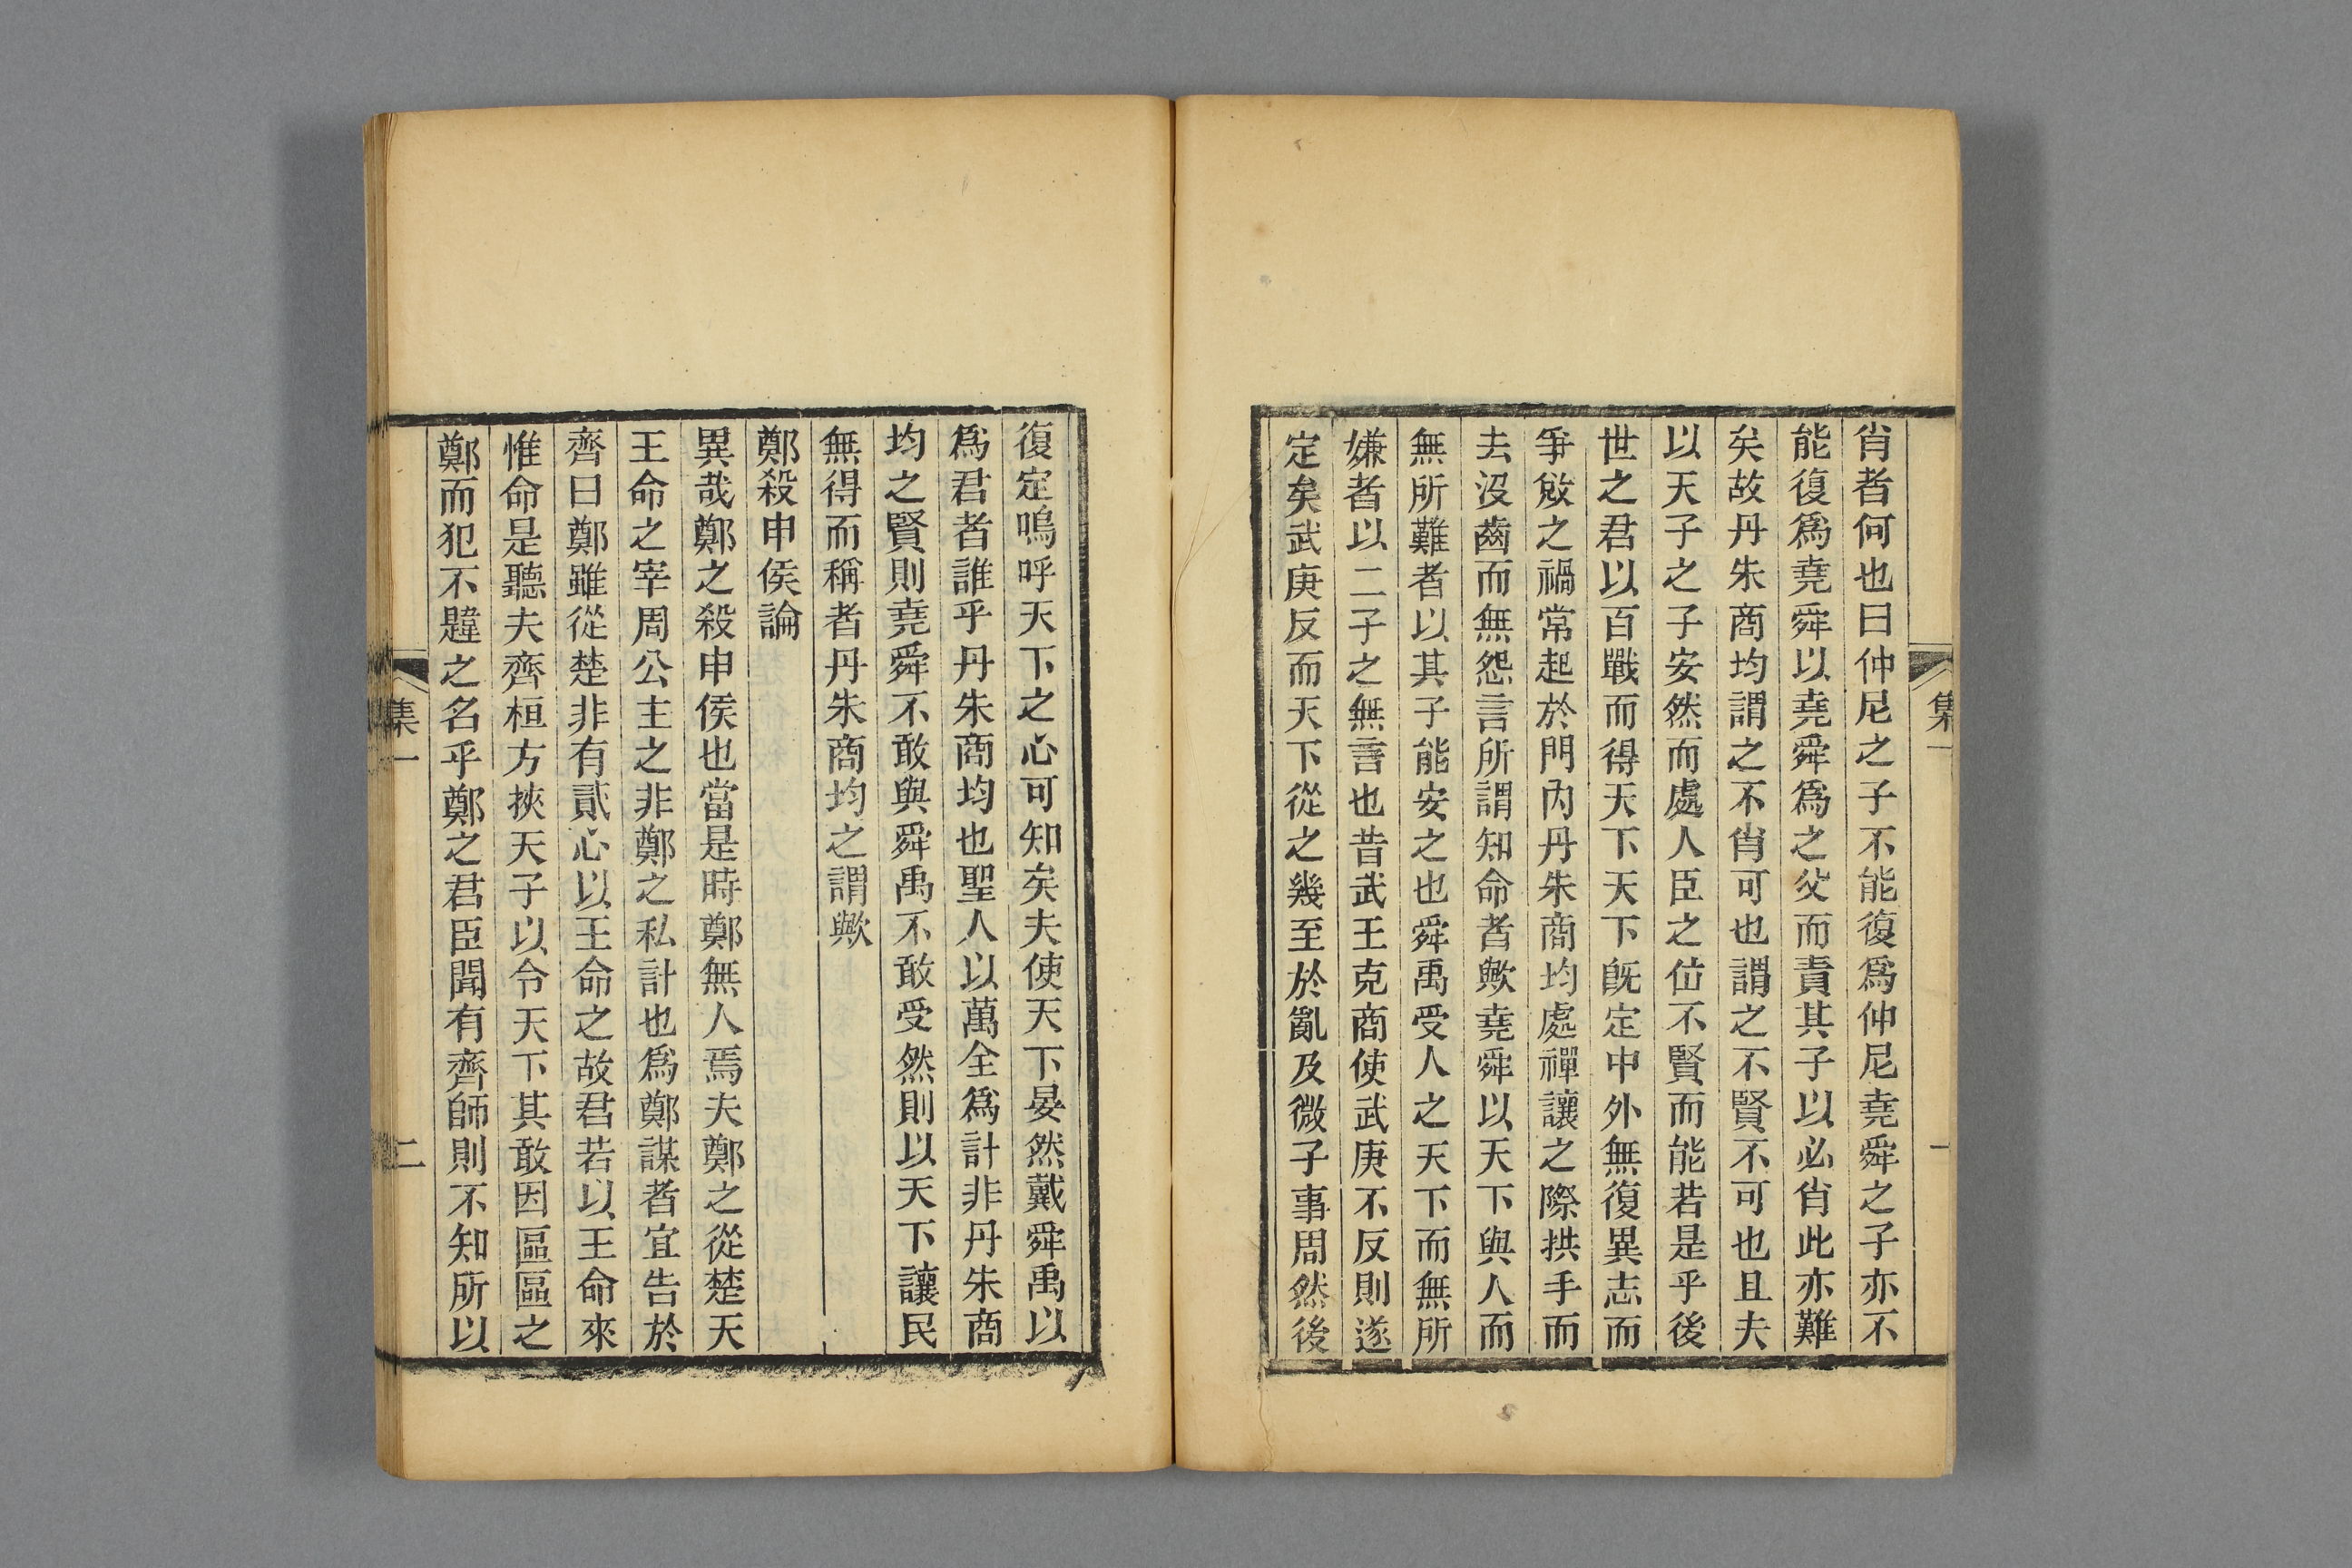 肖者何也曰仲尼之子不能復爲仲尼堯舜之子亦不
能復爲堯舜以堯舜爲之父而責其子以必肖此亦難
矣故丹朱商均謂之不肖可也謂之不賢不可也且夫
以天子之子安然而處人臣之位不賢而能若是乎後
世之君以百戰而得天下天下旣定中外無復異志而
爭敓之禍常起於門內丹朱商均處禪讓之際拱手而
去沒齒而無怨言所謂知命者歟堯舜以天下與人而
無所難者以其子能安之也舜禹受人之天下而無所
嫌者以二子之無言也昔武王克商使武庚不反則遂
定矣武庚反而天下從之幾至於亂及微子事周然後
集一
一
復定嗚呼天下之心可知矣夫使天下晏然戴舜禹以
爲君者誰乎丹朱商均也聖人以萬全爲計非丹朱商
均之賢則堯舜不敢與舜禹不敢受然則以天下讓民
無得而稱者丹朱商均之謂歟
鄭殺申侯論
異哉鄭之殺申侯也當是時鄭無人焉夫鄭之從楚天
王命之宰周公主之非鄭之私計也爲鄭謀者宜告於
齊曰鄭雖從楚非有貳心以王命之故君若以王命來
惟命是聽夫齊桓方挾天子以令天下其敢因區區之
鄭而犯不韙之名乎鄭之君臣聞有齊師則不知所以
集一
二